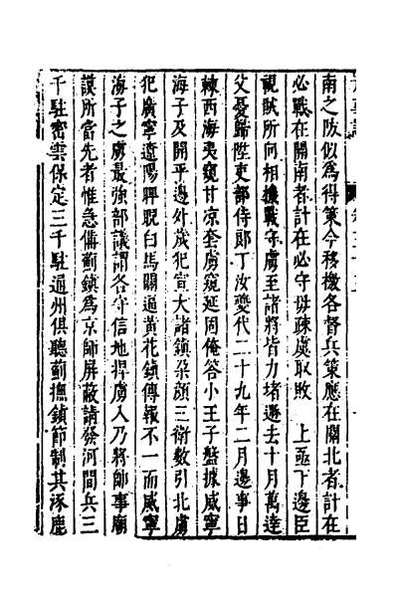 南之防似爲得策今移檄各督兵策應在關北者計在
必戰在關南者計在必守毋疎虞取敗　上亟下邊臣
視賊所向相機戰守虜至諸將皆力堵遏去十月萬達
父憂歸陞吏部侍郎丁汝夔代二十九年二月邊事日
棘西海夷窺甘凉套虜窺延固俺答小王子盤據威寧
海子及開平邊外歲犯宣大諸鎮朶顏三衛數引北虜
犯廣寧遼陽睥睨白馬關逼黃花鎮傳報不一而威寧
海子之虜最強部議謂各守信地捍虜人乃將帥事廟
謨所當先者惟急備薊鎮爲京師屏蔽請發河間兵三
千駐密雲保定三千駐通州俱聽薊撫鎮節制其涿鹿